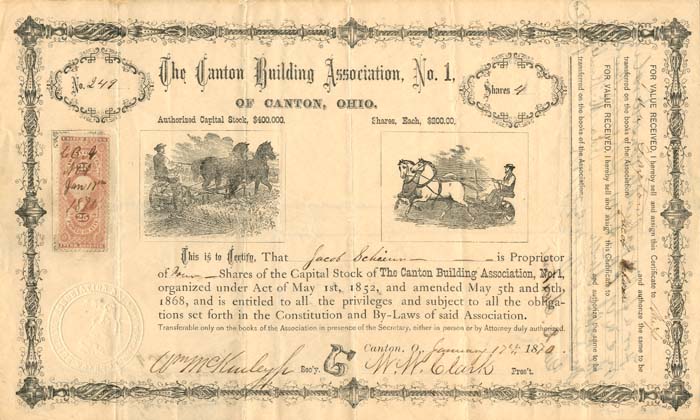 No. 249
The Canton Building Association, No. 1,
Shares 4
OF CANTON, OHIO.
Authorized Capital Stock, $400.000.
Shares, Each, $200.00.
Jan 17th
1870
25
This is to Certify, That Jacob is Proprietor
of Four Shares of the Capital Stock of The Canton Building Association, No. 1,
organized under Act of May 1st, 1852, and amended May 5th and 9th,
1868, and is entitled to all the privileges and subject to all the obliga-
tions set forth in the Constitution and By-Laws of said Association.
Transferable only on the books of the Association in presence of the Secretary, either in person or by Attorney duly authorized.
Canton, O. January 17th 1870.
Wm McKinley Jr Sec'y.
W. W. Clark Pres't.
FOR VALUE RECEIVED, I hereby sell and assign this Certificate to
and authorize the same to be
transferred on the books of the Association.
FOR VALUE RECEIVED, I hereby sell and assign this Certificate to
and authorize the same to be
transferred on the books of the Association.